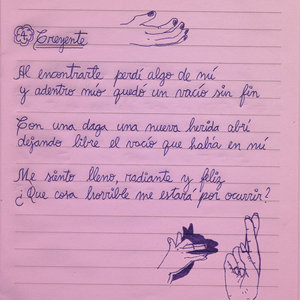 4 Creyente
Al encontrarte perdí algo de mí
y adentro mío quedó un vacío sin fin
Con una daga una nueva herida abrí
dejando libre el vacío que había en mí
Me sinto lleno, radiante y feliz
¿Que cosa horrible me estará por ocurrir?